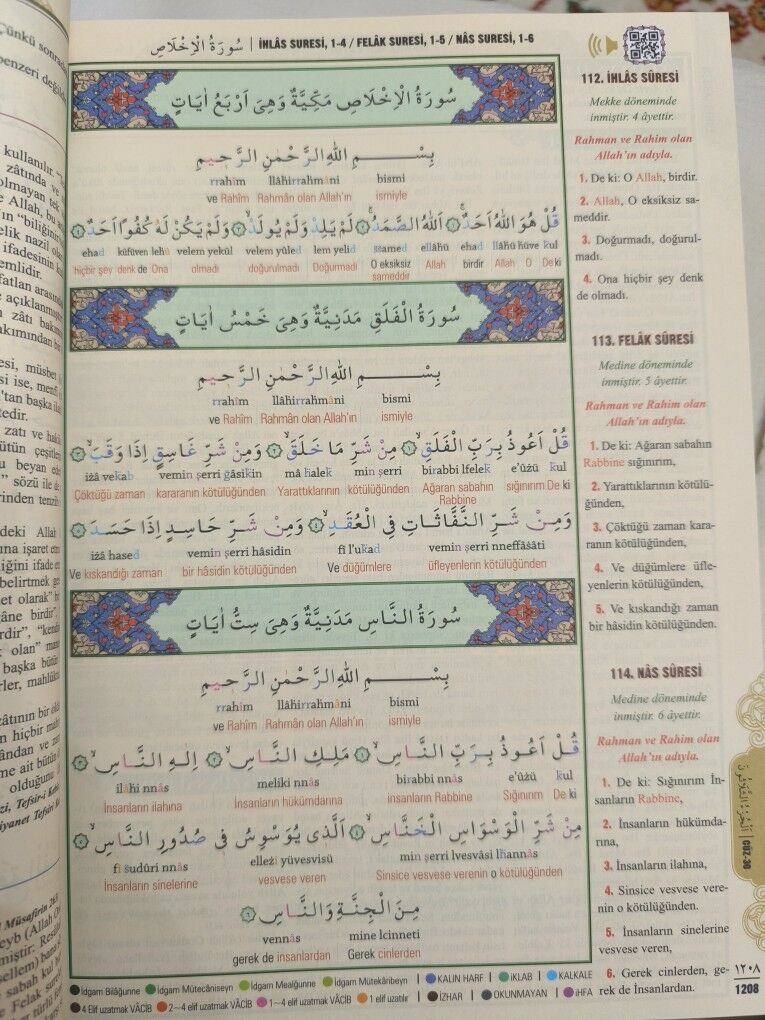 سُورَةُ الْاِخْلَاصِ | İHLÂS SURESİ, 1-4 / FELÂK SURESİ, 1-5 / NÂS SURESİ, 1-6
سُورَةُ الْاِخْلَاصِ مَكِّيَّةٌ وَهِىَ اَرْبَعُ اٰيَاتٍ
بِسْمِ اللّٰهِ الرَّحْمٰنِ الرَّحِيمِ
rrahîm llâhirrahmâni bismi
ve Rahîm Rahmân olan Allah'ın ismiyle
قُلْ هُوَ اللّٰهُ اَحَدٌۚ ﴿١﴾ اَللّٰهُ الصَّمَدُۚ ﴿٢﴾ لَمْ يَلِدْ وَلَمْ يُولَدْۙ ﴿٣﴾ وَلَمْ يَكُنْ لَهُ كُفُوًا اَحَدٌ ﴿٤﴾
ehad küfüven lehû velem yekül velem yûled lem yelid ssamed ellâhü ehad llâhü hüve kul
hiçbir şey denk de Ona olmadı doğurulmadı Doğurmadı O eksiksiz sameddir Allah birdir Allah O De ki
سُورَةُ الْفَلَقِ مَدَنِيَّةٌ وَهِىَ خَمْسُ اٰيَاتٍ
بِسْمِ اللّٰهِ الرَّحْمٰنِ الرَّحِيمِ
rrahîm llâhirrahmâni bismi
ve Rahîm Rahmân olan Allah'ın ismiyle
قُلْ اَعُوذُ بِرَبِّ الْفَلَقِۙ ﴿١﴾ مِنْ شَرِّ مَا خَلَقَۙ ﴿٢﴾ وَمِنْ شَرِّ غَاسِقٍ اِذَا وَقَبَۙ ﴿٣﴾
iẑâ vekab vemin şerri ğâsikin mâ halek min şerri birabbi lfelek e'ûẑü kul
Çöktüğü zaman kararanın kötülüğünden Yarattıklarının kötülüğünden Ağaran sabahın Rabbine sığınırım De ki
وَمِنْ شَرِّ النَّفَّاثَاتِ فِى الْعُقَدِۙ ﴿٤﴾ وَمِنْ شَرِّ حَاسِدٍ اِذَا حَسَدَ ﴿٥﴾
iẑâ hased vemin şerri hâsidin fi l'ukad vemin şerri nneffâŝâti
Ve kıskandığı zaman bir hâsidin kötülüğünden Ve düğümlere üfleyenlerin kötülüğünden
سُورَةُ النَّاسِ مَدَنِيَّةٌ وَهِىَ سِتُّ اٰيَاتٍ
بِسْمِ اللّٰهِ الرَّحْمٰنِ الرَّحِيمِ
rrahîm llâhirrahmâni bismi
ve Rahîm Rahmân olan Allah'ın ismiyle
قُلْ اَعُوذُ بِرَبِّ النَّاسِۙ ﴿١﴾ مَلِكِ النَّاسِۙ ﴿٢﴾ اِلٰهِ النَّاسِۙ ﴿٣﴾
ilâhi nnâs meliki nnâs birabbi nnâs e'ûẑü kul
İnsanların ilahına İnsanların hükümdarına insanların Rabbine Sığınırım De ki
مِنْ شَرِّ الْوَسْوَاسِ الْخَنَّاسِۙ ﴿٤﴾ اَلَّذِى يُوَسْوِسُ فِى صُدُورِ النَّاسِۙ ﴿٥﴾
fî sudûri nnâs elleẑî yüvesvisü min şerri lvesvâsi lhannâs
İnsanların sinelerine vesvese veren Sinsice vesvese verenin o kötülüğünden
مِنَ الْجِنَّةِ وَالنَّاسِ ﴿٦﴾
vennâs mine lcinneti
gerek de insanlardan Gerek cinlerden
İdgam Bilâğunne İdgam Mütecâniseyn İdgam Mealğunne İdgam Mütekâribeyn | KALIN HARF | İKLAB | KALKALE
4 Elif uzatmak VÂCİB 2~4 elif uzatmak VÂCİB 1~4 elif uzatmak VÂCİB 1 elif uzatılır | İZHAR | OKUNMAYAN | İHFA
112. İHLÂS SÛRESİ
Mekke döneminde
inmiştir. 4 âyettir.
Rahman ve Rahim olan
Allah'ın adıyla.
1. De ki: O Allah, birdir.
2. Allah, O eksiksiz sa-
meddir.
3. Doğurmadı, doğurul-
madı.
4. Ona hiçbir şey denk
de olmadı.
113. FELÂK SÛRESİ
Medine döneminde
inmiştir. 5 âyettir.
Rahman ve Rahim olan
Allah'ın adıyla.
1. De ki: Ağaran sabahın
Rabbine sığınırım,
2. Yarattıklarının kötülü-
ğünden,
3. Çöktüğü zaman kara-
ranın kötülüğünden,
4. Ve düğümlere üfle-
yenlerin kötülüğünden,
5. Ve kıskandığı zaman
bir hâsidin kötülüğünden.
114. NÂS SÛRESİ
Medine döneminde
inmiştir. 6 âyettir.
Rahman ve Rahim olan
Allah'ın adıyla.
1. De ki: Sığınırım İn-
sanların Rabbine,
2. İnsanların hükümda-
rına,
3. İnsanların ilahına,
4. Sinsice vesvese vere-
nin o kötülüğünden.
5. İnsanların sinelerine
vesvese veren,
6. Gerek cinlerden, ge-
rek de İnsanlardan.
CÜZ-30
١٢٠٨
1208